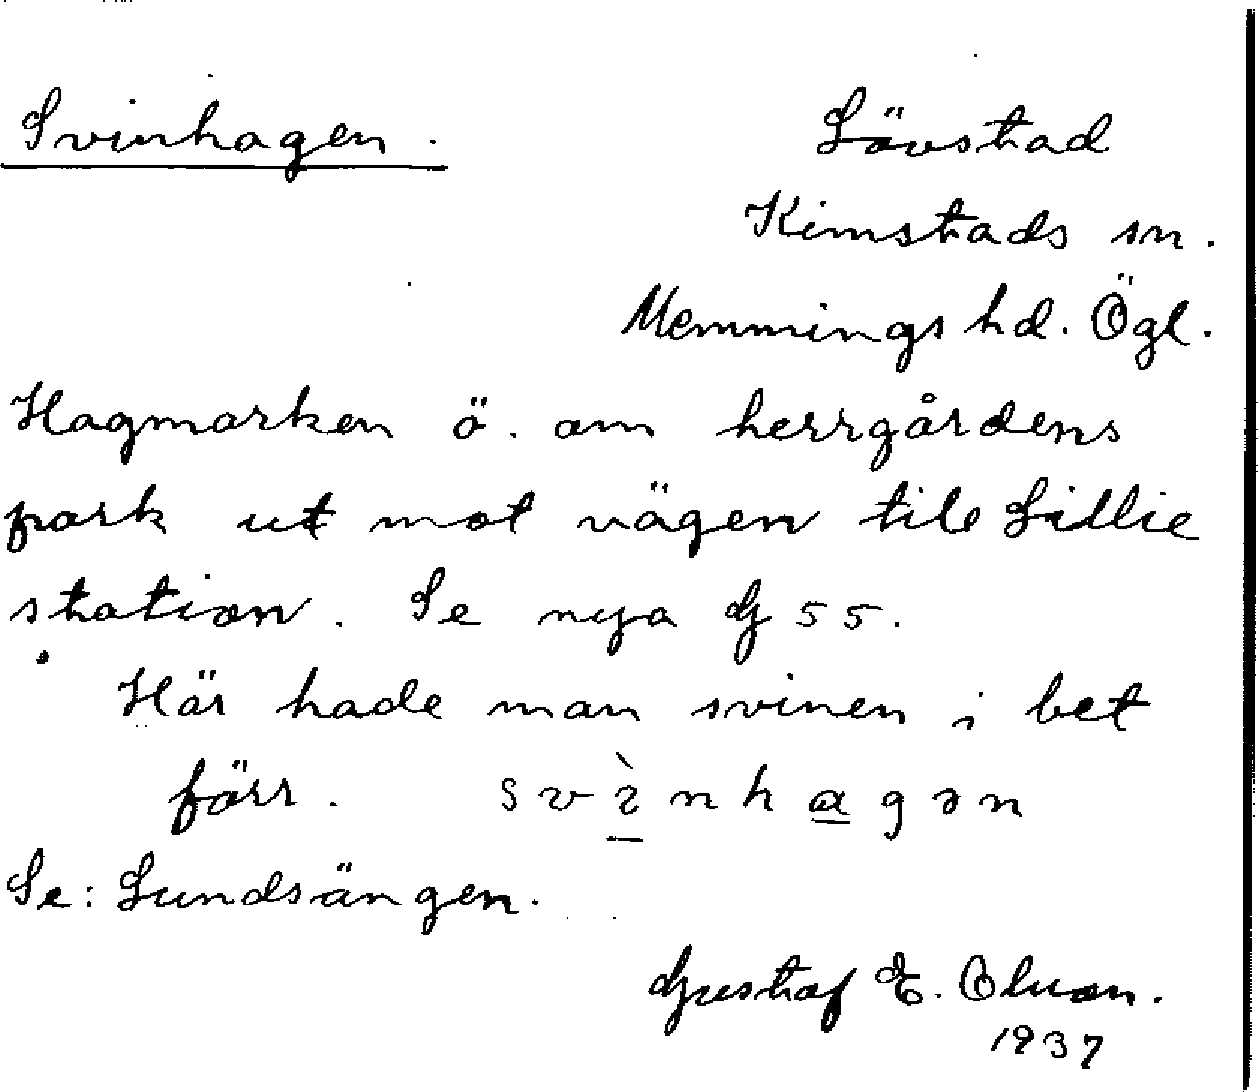 Svinhagen. Lövstad
Kimstads sn.
Memmings hd. Ögl.
Hagmarken ö. om herrgårdens
park ut mot vägen till Lillie
station. Se nya G 55.
Här hade man svinen i bet
förr. svìnhagən
Se: Lundsängen.
Gustaf E. Olsson.
1937